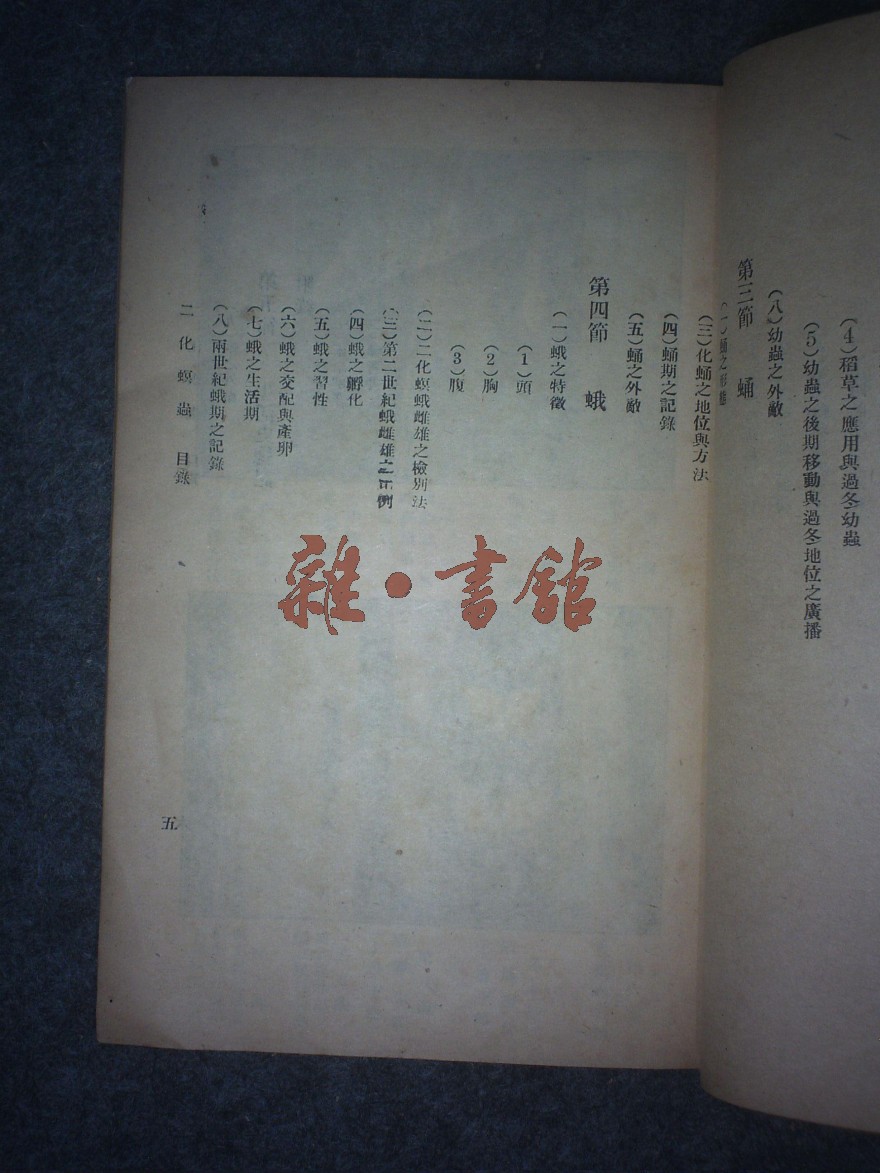 (4)稻草之應用與過冬幼蟲
(5)幼蟲之後期移動與過冬地位之廣播
(八)幼蟲之外敵
第三節 蛹
(一)蛹之形態
(三)化蛹之地位與方法
(四)蛹期之記錄
(五)蛹之外敵
第四節 蛾
(一)蛾之特徵
(1)頭
(2)胸
(3)腹
(二)二化螟蛾雌雄之檢別法
(三)第二世紀蛾雌雄之比例
(四)蛾之孵化
(五)蛾之習性
(六)蛾之交配與產卵
(七)蛾之生活期
(八)兩世紀蛾期之記錄
二化螟蟲 目錄
五
雜·書館